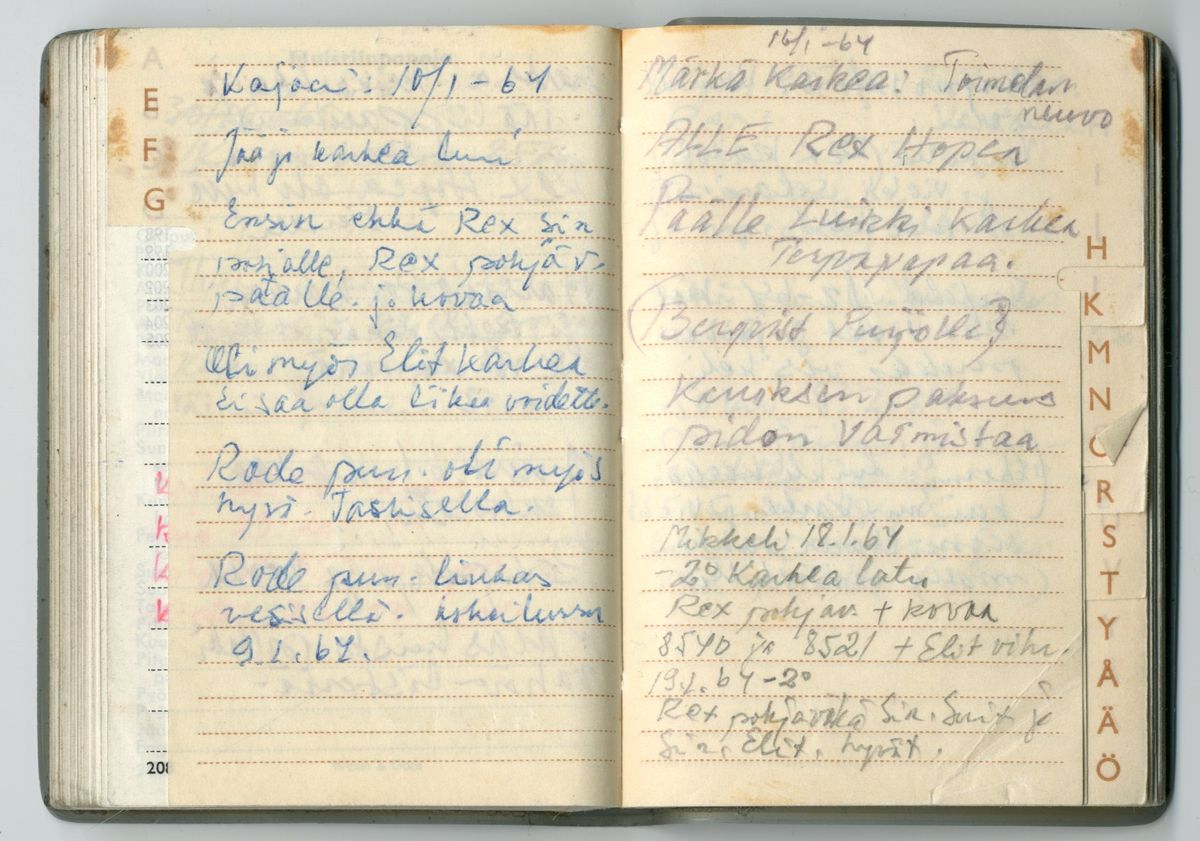 A
E
F
G
Kajaani: 10/1 -64
Jää ja karkea lumi
Ensin ehkä Rex sin
pohjalle, Rex pohjäv.
päälle. ja kovaa
Oli myös Elit karkea
Ei saa olla liikaa voidetta.
Rode pun. oli myös
hyvä. Tasaisella.
Rode pun. liukas
vesisellä. kokeilussa
9.1.64.
208
16/1 -64
Märkä karkea: Toimelan
neuvo
ALLE Rex Hopea
Päälle Luikki Karhea
Tervavapaa.
(Bergvist Puijolla?)
Kerroksen paksuus
pidon varmistaa
Mikkeli 18.1.64
-2° Karhea latu
Rex pohjav + kovaa
8540 ja 8521 + Elit vihr.
19.1.64 -2°
Rex pohjavoikä Sin. Swit ja
Sin. Elit. hyvät.
H
K
M
N
O
R
S
T
Y
Å
Ä
Ö